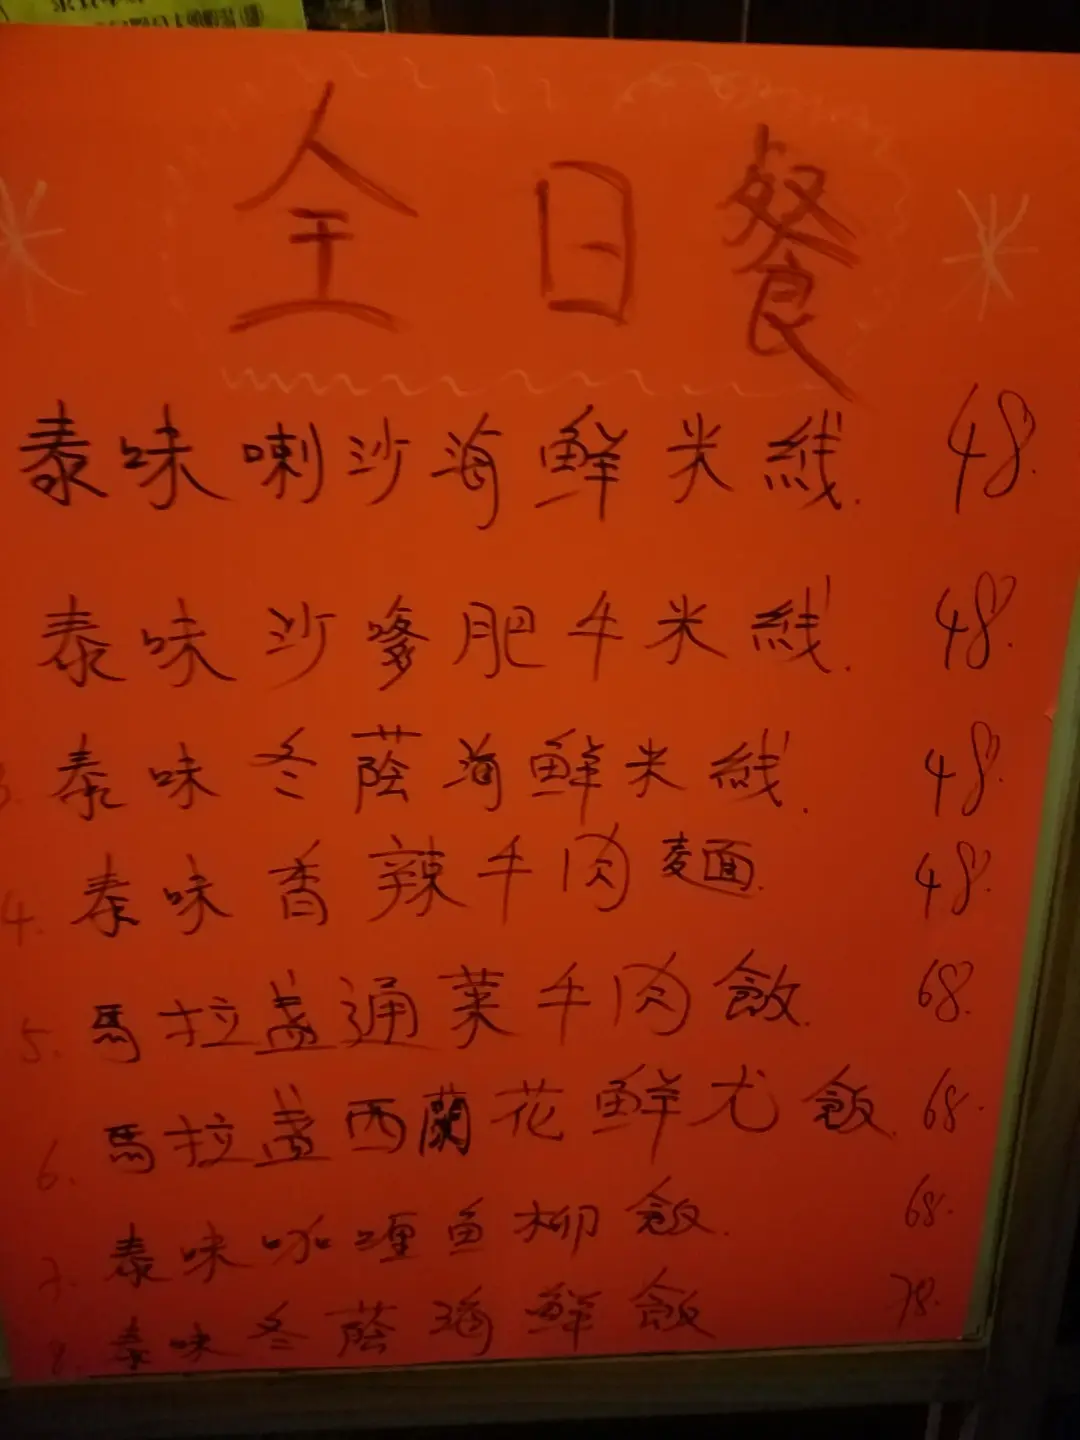 全日餐
泰味喇沙海鮮米綫. 48.
泰味沙嗲肥牛米綫. 48.
3. 泰味冬蔭海鮮米綫. 48.
4. 泰味香辣牛肉麵. 48.
5. 馬拉盞通菜牛肉飯. 68.
6. 馬拉盞西蘭花鮮尤飯. 68.
7. 泰味咖喱魚柳飯. 68.
8. 泰味冬蔭海鮮飯 78.